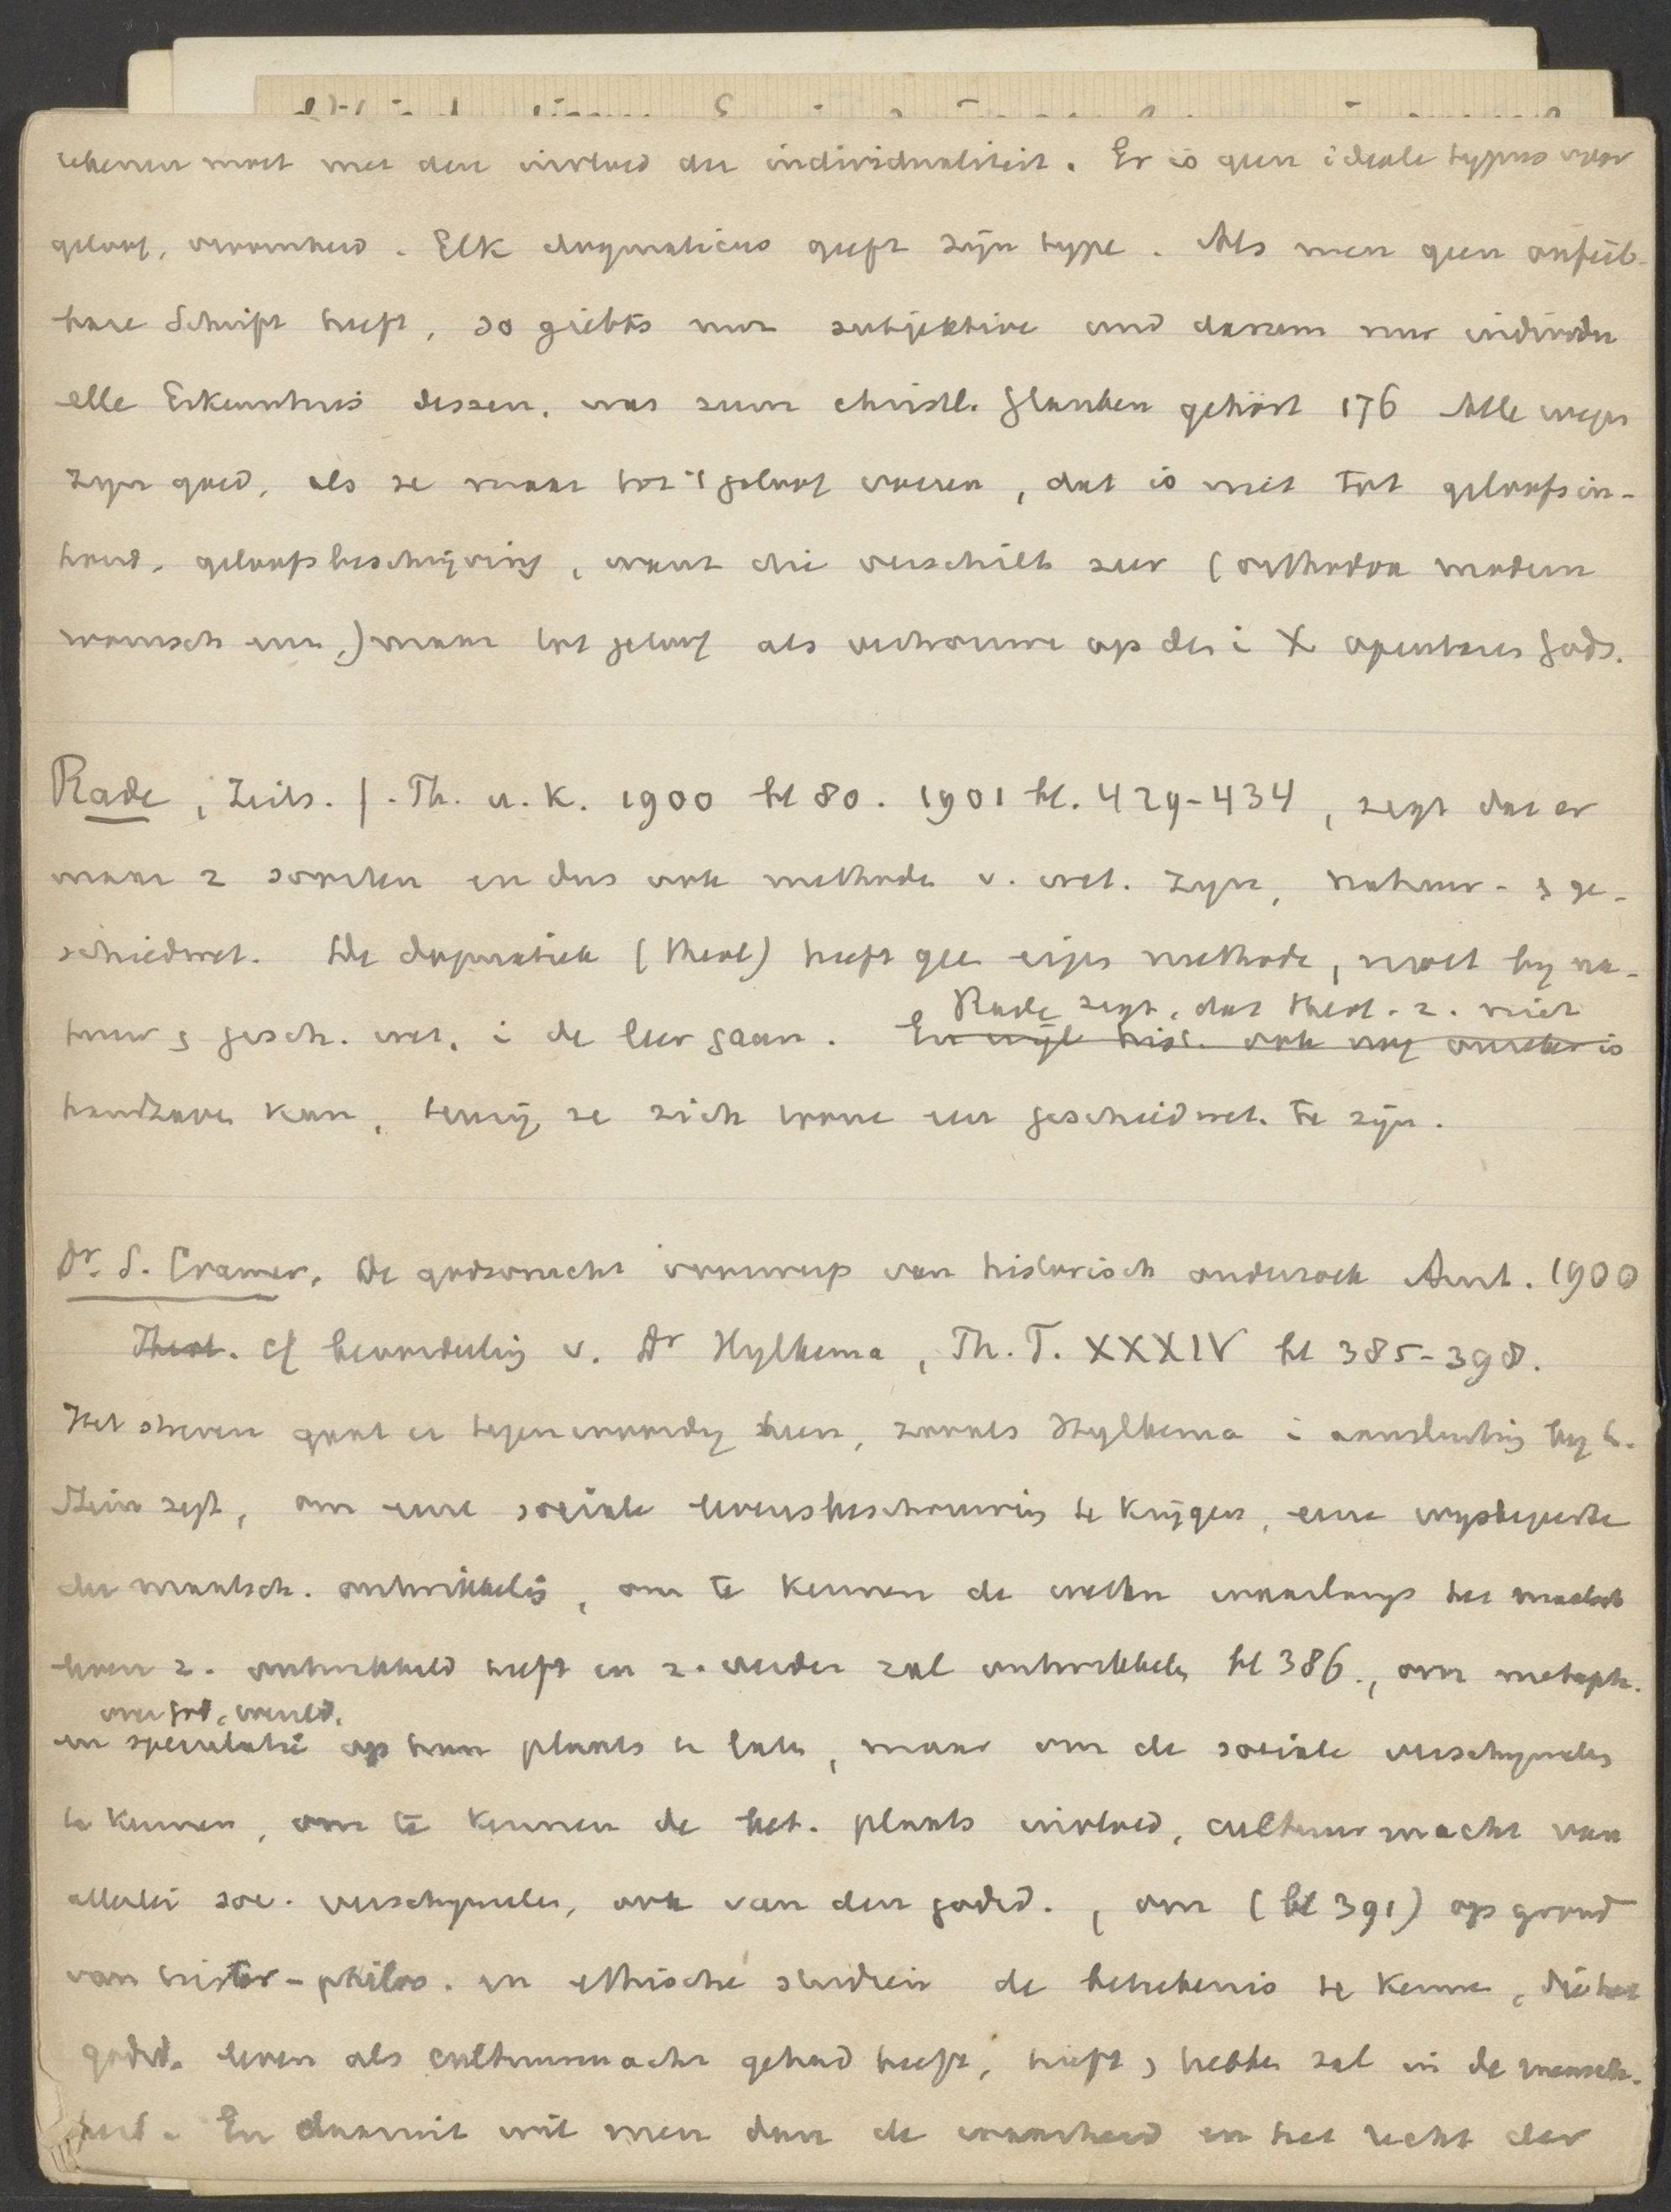 rekenen moet met den invloed der individualiteit. Er is geen ideale typus voor
geloof, vroomheid. Elk dogmaticus geeft zijn type. Als men geen onfeil-
bare Schrift heeft, so giebts nur subjektive und darum nur individu
elle Erkenntnis dessen, was zum christl. Glauben gehört 176 Alle wegen
zyn goed, als ze maar tot 't geloof voeren, dat is niet tot geloofsin-
houd, geloofsbeschrijving, want die verschilt zeer (orthodox modern
roomsch enz.) maar tot geloof als vertrouwen op de i X openbaring Gods.
Rade, Zeits. f. Th. u. K. 1900 bl 80. 1901 bl. 429-434, zegt dat er
maar 2 soorten en dus ook methode v. wet. zyn, natuur- & ge-
schiedwet. De dogmatiek (theol) heeft gee eigen methode, moet by na-
Rade zegt, dat theol. z. niet
tuur & gesch. wet. i de leer gaan. En wijl hist. ook nog onzeker is
handhaven kan, tenzij ze zich toone een geschiedwet. te zijn.
Dr. S. Cramer, De godsvrucht voorwerp van historisch onderzoek Amst. 1900
Theol. cf beoordeeling v. Dr Hylkema, Th. T. XXXIV bl 385-398.
Het streven gaat er tegenwoordig heen, zooals Hylkema i aansluiting by L.
Stein zegt, om eene sociale levensbeschouwing te krijgen, eene wysbegeerte
der maatsch. ontwikkeling, om te kennen de wetten waarlangs het maatsch
leven z. ontwikkeld heeft en z. verder zal ontwikkelen bl 386., om metaph.
over God, wereld.
en speculatie op haar plaats te laten, maar om de sociale verschynselen
te kennen, om te kennen de bet. plaats invloed, cultuurmacht van
allerlei soc. verschynselen, ook van den godsd., om (bl 391) op grond
van histor-philos. en ethische studien de beteekenis te kennen, die het
godsd. leven als cultuurmacht gehad heeft, heeft & hebben zal in de mensch-
heid. En daarmit wil men dan de waarheid en het recht der